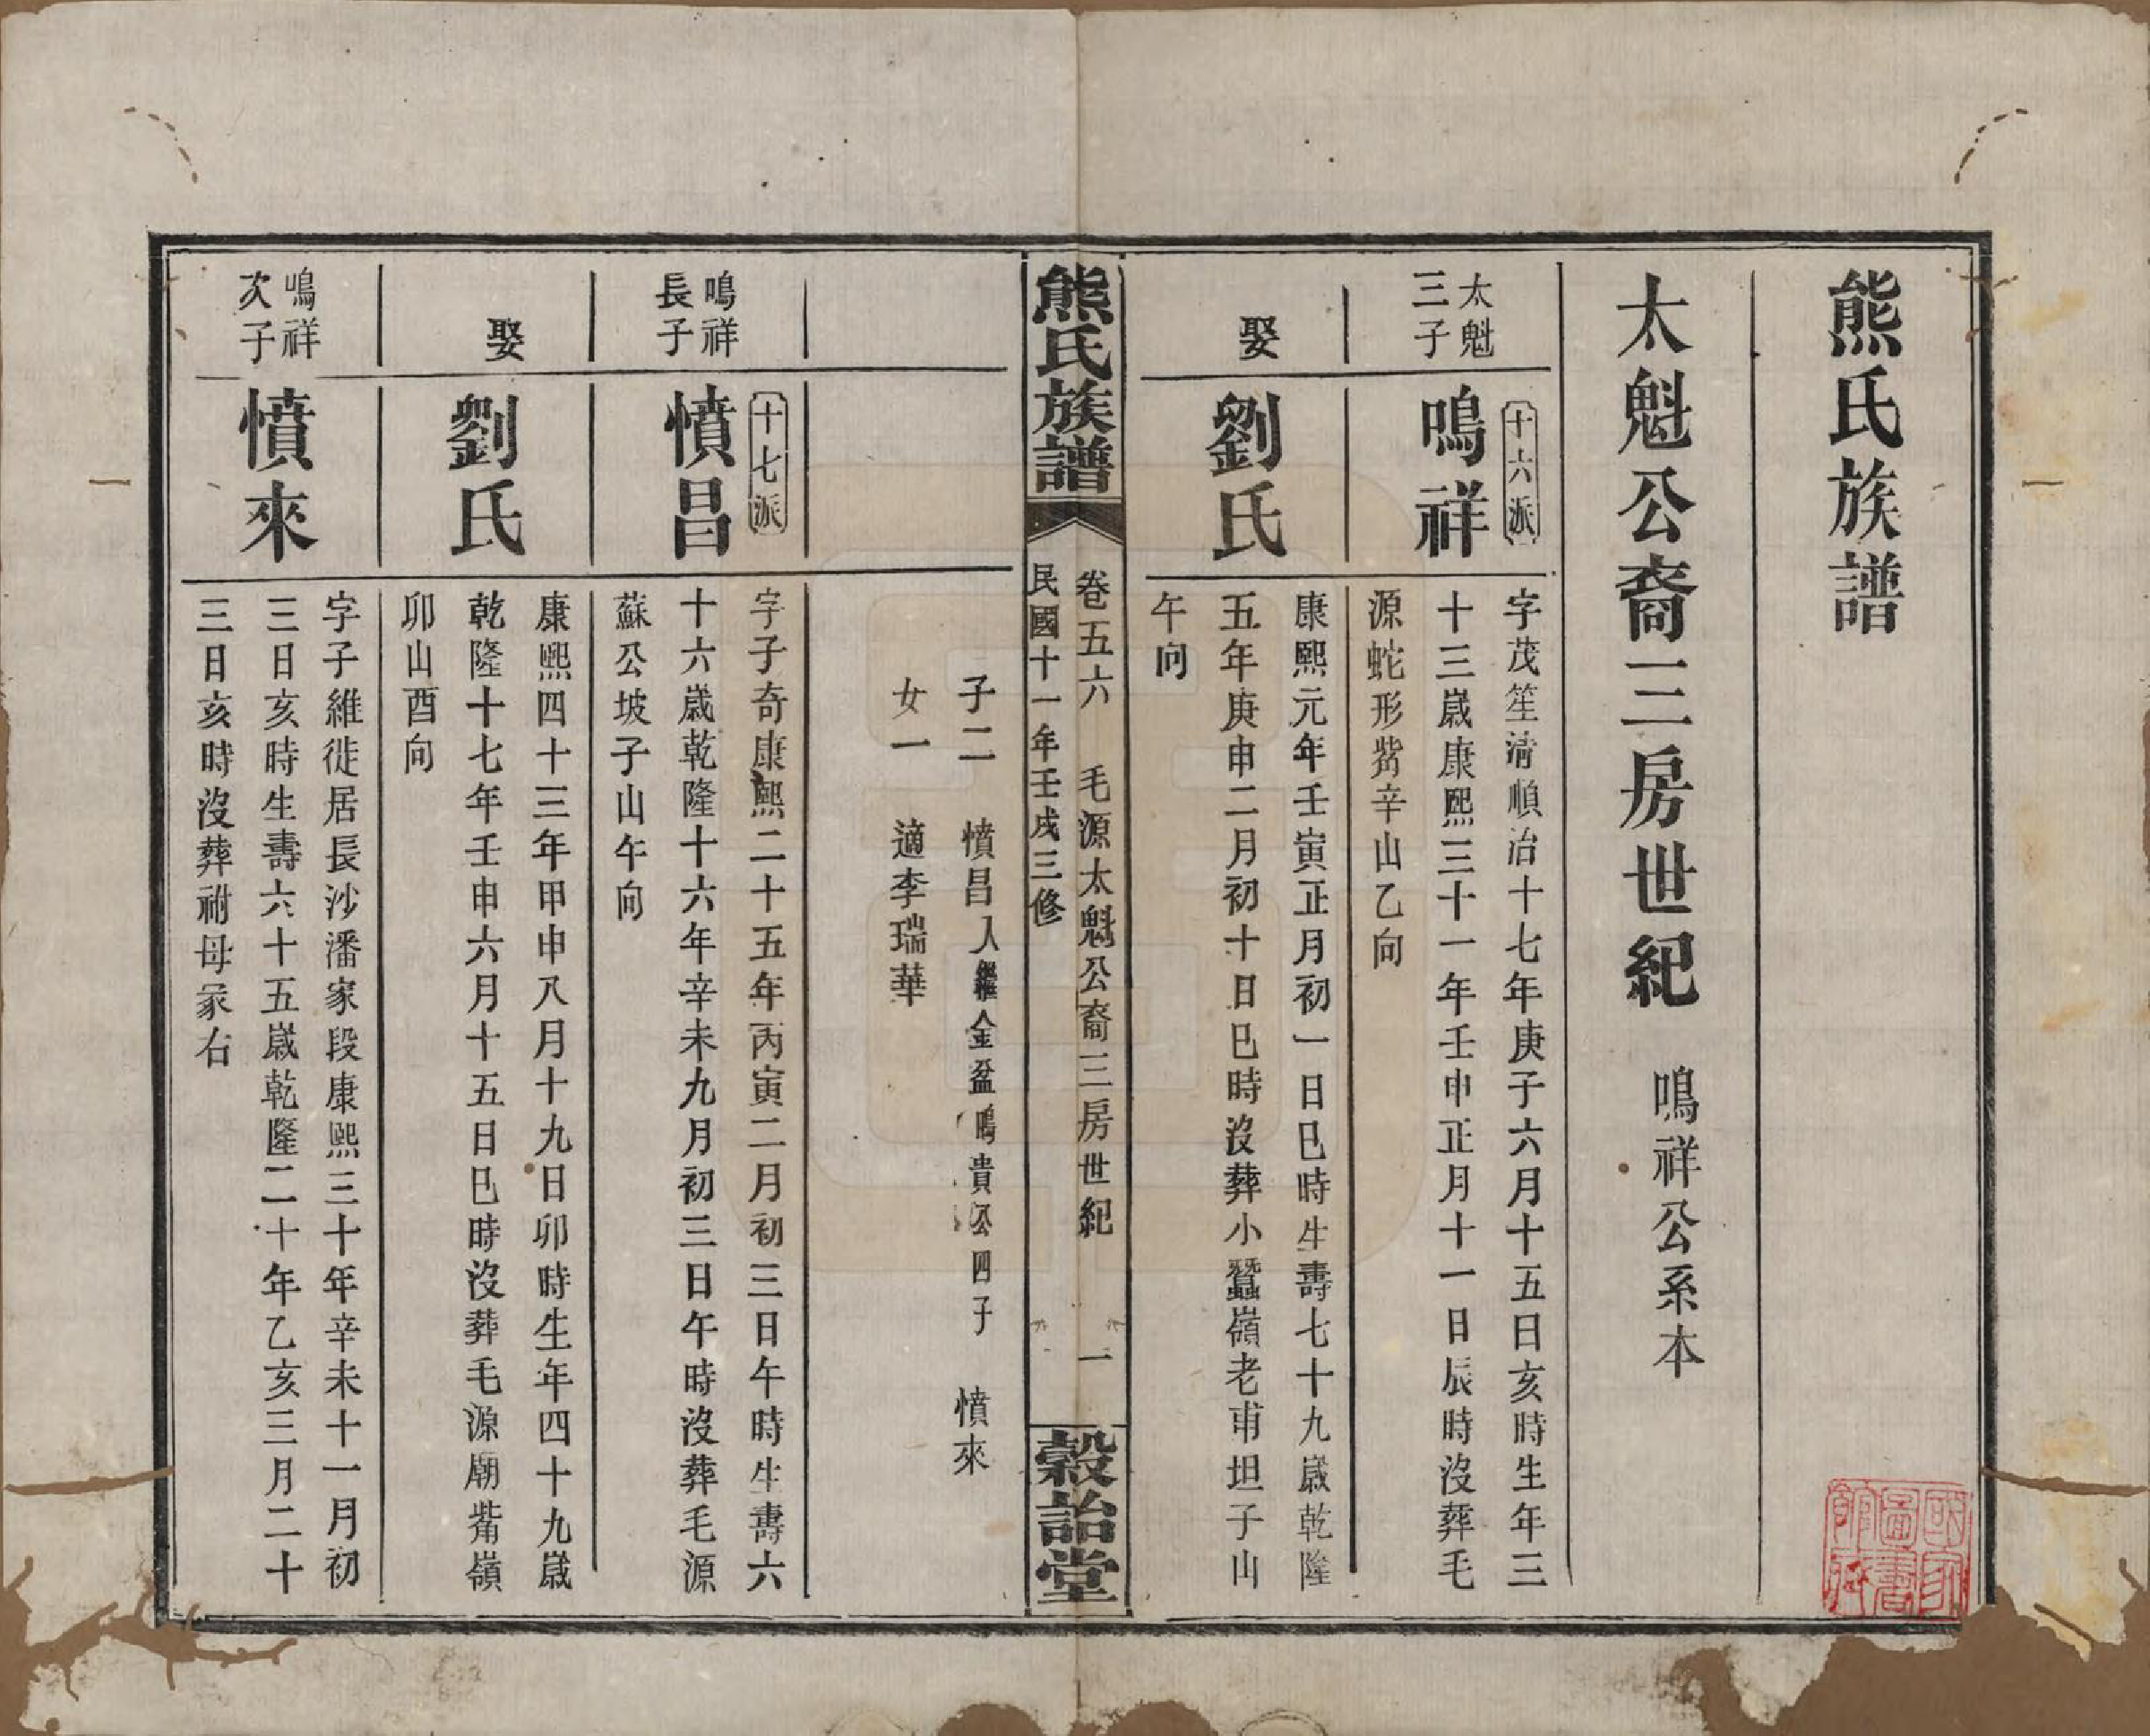 熊氏族譜
太魁公裔三房世紀 鳴祥公系本
太魁
三子
十六派
鳴祥
字茂笙清順治十七年庚子六月十五日亥時生年三
十三歲康熙三十一年壬申正月十一日辰時沒葬毛
源蛇形觜辛山乙向
娶
劉氏
康熙元年壬寅正月初一日巳時生壽七十九歲乾隆
五年庚申二月初十日巳時沒葬小蠶嶺老甫坦子山
午向
熊氏族譜
卷五六 毛源太魁公裔三房世紀 一
民國十一年壬戌三修
穀詒堂
子二 憤昌入繼金盆鳴貴公四子 憤來
女一 適李瑞華
鳴祥
長子
十七派
憤昌
字子奇康熙二十五年丙寅二月初三日午時生壽六
十六歲乾隆十六年辛未九月初三日午時沒葬毛源
蘇公坡子山午向
娶
劉氏
康熙四十三年甲申八月十九日卯時生年四十九歲
乾隆十七年壬申六月十五日巳時沒葬毛源廟觜嶺
卯山酉向
鳴祥
次子
憤來
字子維徙居長沙潘家段康熙三十年辛未十一月初
三日亥時生壽六十五歲乾隆二十年乙亥三月二十
三日亥時沒葬祔母冢右
國家
圖書
館藏